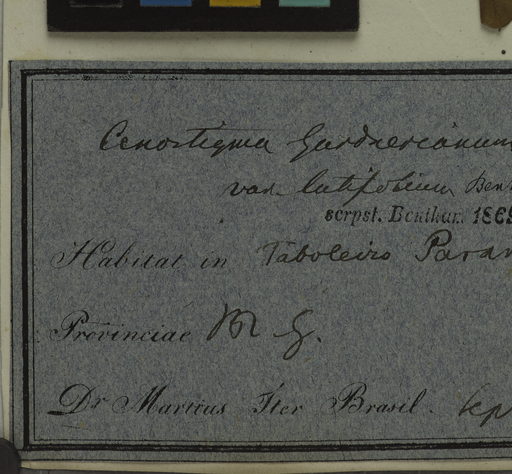 Cenostigma Gardnerianum
var. latifolium Ben
scrpst. Benthar. 1869
Habitat in Taboleiro Paran
Provinciae M G.
Dr Martius Iter Brasil.